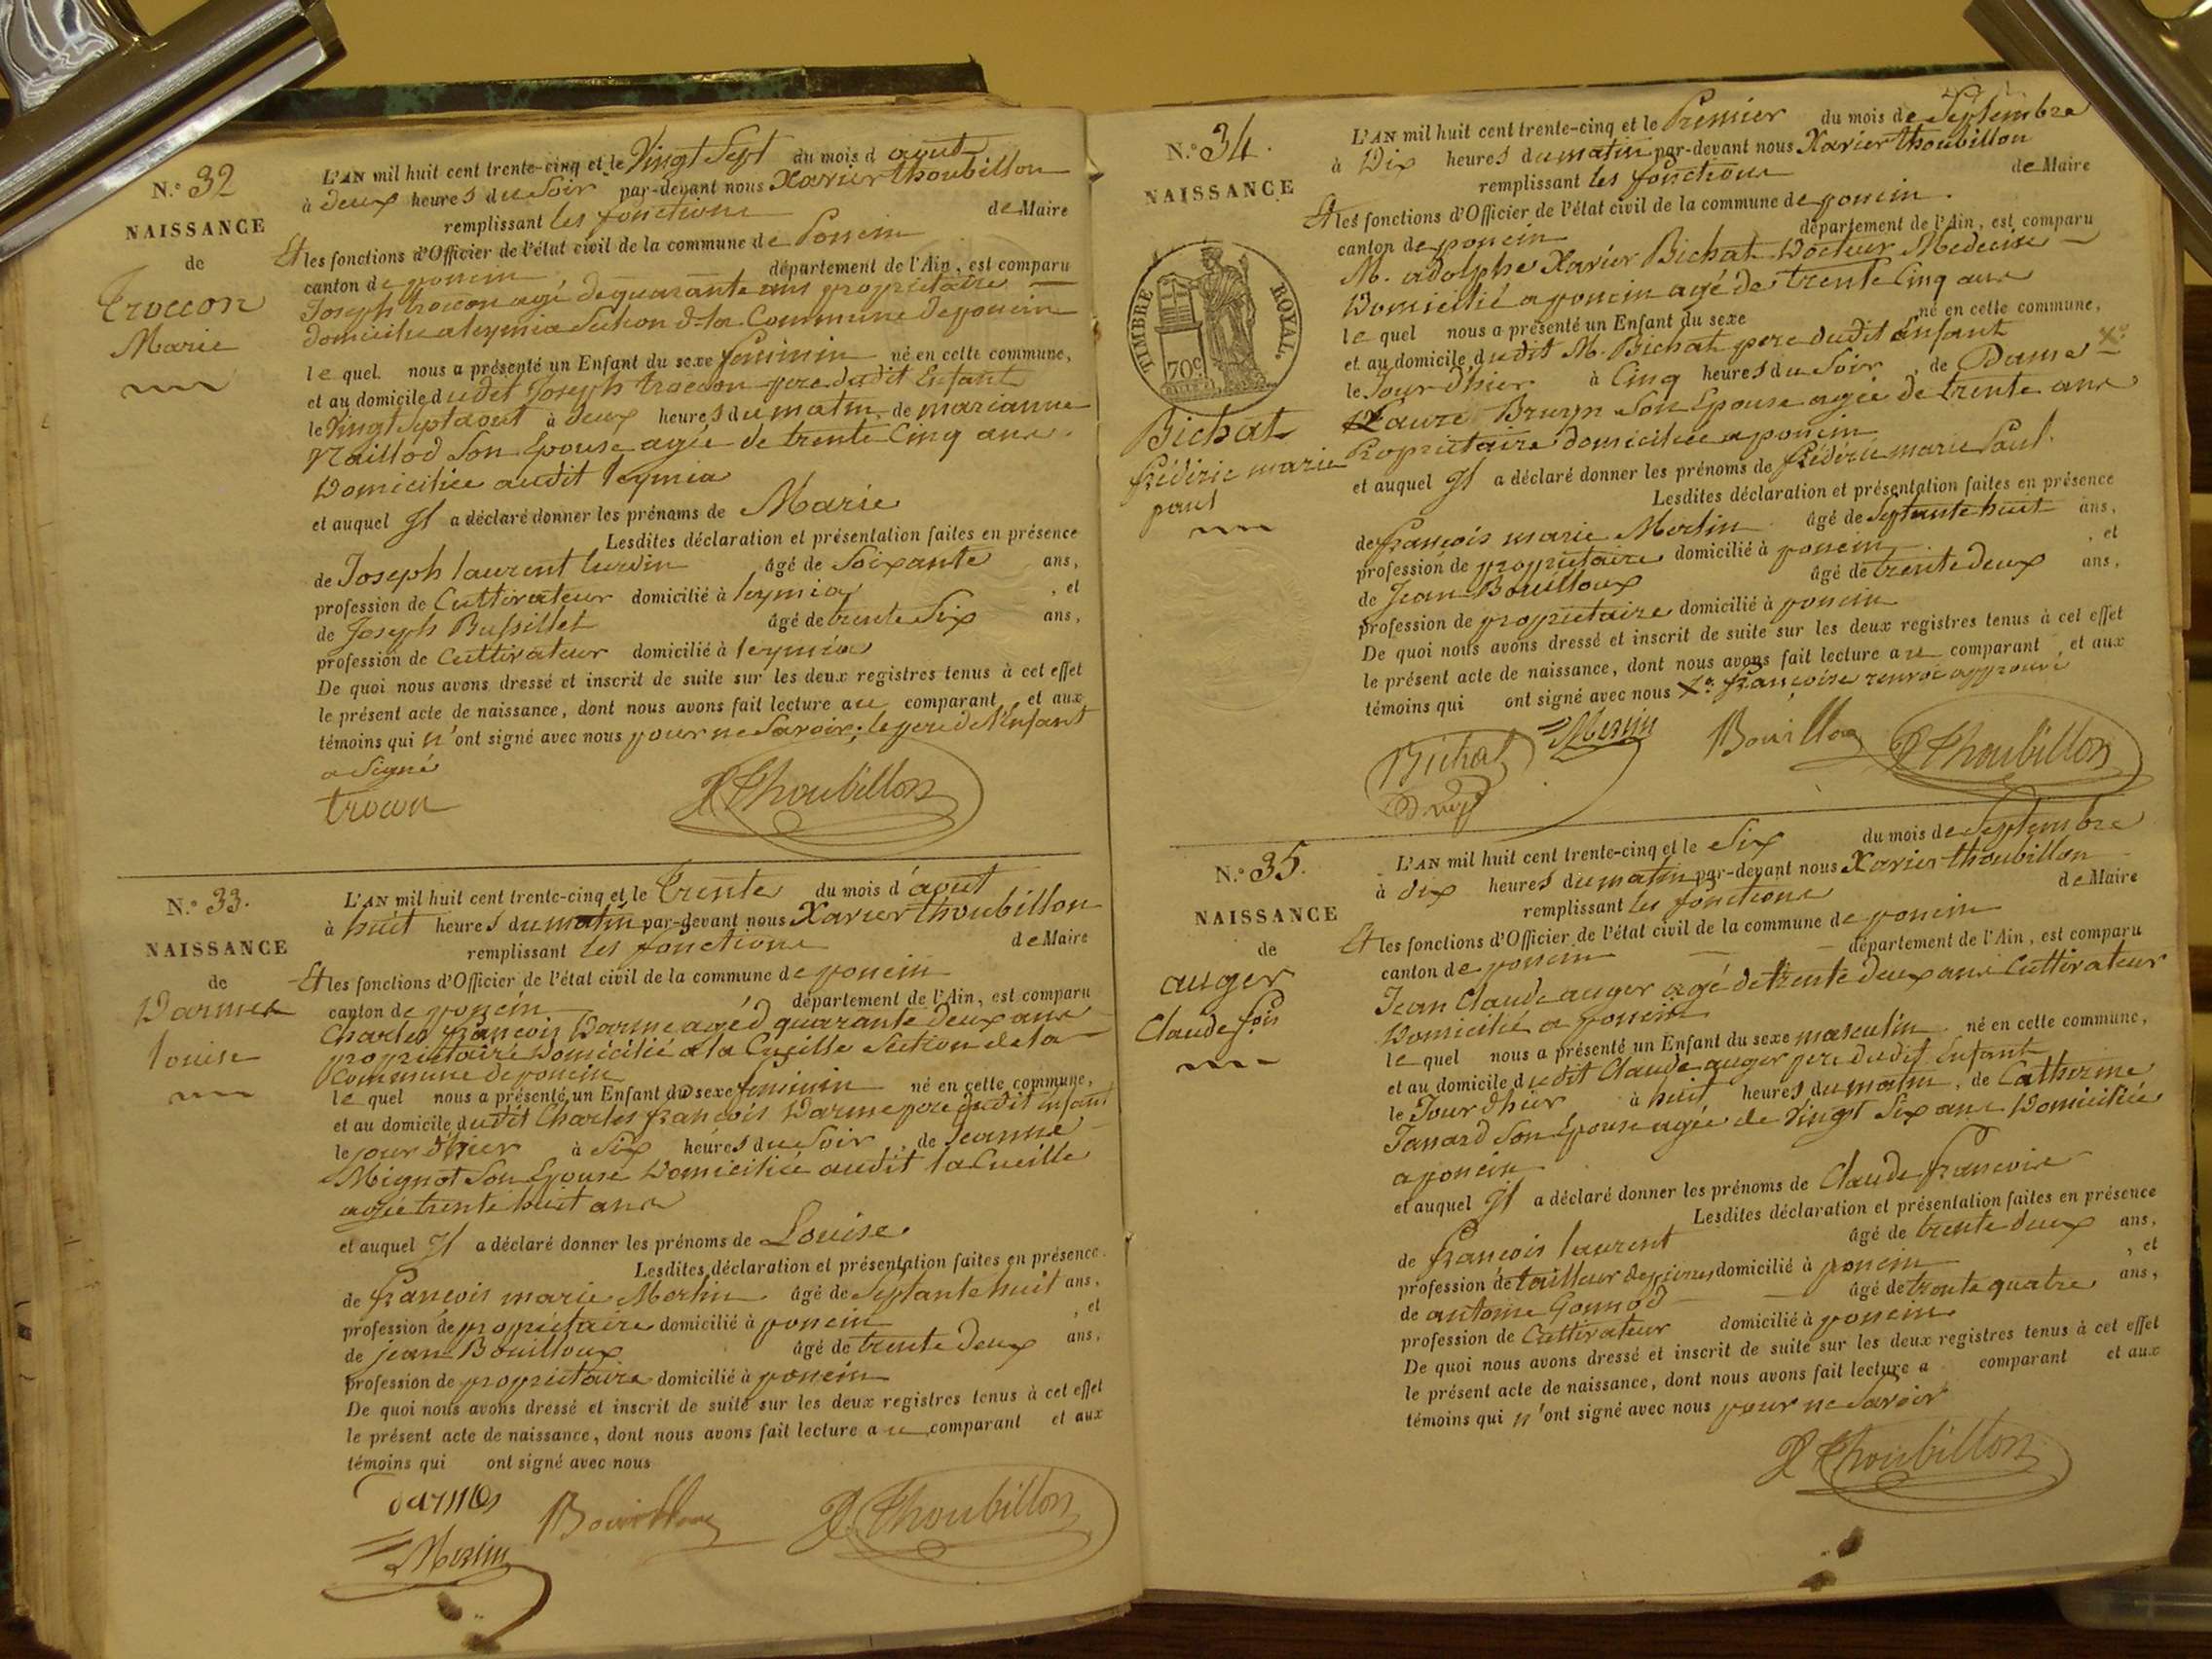 N.° 32
NAISSANCE
de
Troccon
Marie
L'AN mil huit cent trente-cinq et le Vingt Sept du mois d août
à deux heures du Soir par-devant nous Xavier thoubillon
remplissant les fonctions de Maire
Et les fonctions d'Officier de l'état civil de la commune de Poncin
canton de poncin département de l'Ain, est comparu
Joseph troccon agé de quarante ans propriétaire
domicilié a leymia Section d la Commune de poncin
le quel nous a présenté un Enfant du sexe feminin né en cette commune,
et au domicile dudit Joseph troccon pere dudit Enfant
le Vingt Sept aout à deux heures du matin, de marianne
Naillod Son Epouse agée de trente Cinq ans.
Domiciliée audit leymia
et auquel Il a déclaré donner les prénoms de Marie
Lesdites déclaration et présentation faites en présence
de Joseph laurent âgé de Soixante ans,
profession de Cultivateur domicilié à leymia , et
de Joseph Bussillet âgé de trente Six ans,
profession de Cultivateur domicilié à leymia
De quoi nous avons dressé et inscrit de suite sur les deux registres tenus à cet effet
le présent acte de naissance, dont nous avons fait lecture au comparant, et aux
témoins qui n'ont signé avec nous pour ne Savoir; le pere de l'Enfant
a Signé
trocon
Thoubillon
N.° 33.
NAISSANCE
de
Darmes
louise
L'AN mil huit cent trente-cinq et le Trente du mois d'août
à huit heures du matin par-devant nous Xavier thoubillon
remplissant les fonctions de Maire
Et les fonctions d'Officier de l'état civil de la commune de poncin
canton de poncin département de l'Ain, est comparu
Charles françois Darme agé d quarante deux ans
propriétaire domicilié a la Cueille Section de la
Commune de poncin
le quel nous a présenté un Enfant du sexe feminin né en cette commune,
et au domicile dudit Charles françois Darme pere dudit enfant
le jour d'hier à Six heures du Soir, de Jeanne
Mignot Son Epouse Domiciliée audit la Cueille
agée trente huit ans
et auquel Il a déclaré donner les prénoms de Louise
Lesdites déclaration et présentation faites en présence
de françois marie Merlin âgé de Septante huit ans,
profession de propriétaire domicilié à poncin , et
de jean Bouilloux âgé de trente deux ans,
profession de propriétaire domicilié à poncin
De quoi nous avons dressé et inscrit de suite sur les deux registres tenus à cet effet
le présent acte de naissance, dont nous avons fait lecture au comparant et aux
témoins qui ont signé avec nous
Darmes Bouilloux Thoubillon
Merlin
N.° 34.
NAISSANCE
TIMBRE ROYAL.
70c
Bichat
frédéric marie
paul
L'AN mil huit cent trente-cinq et le Premier du mois de Septembre
à Dix heures du matin par-devant nous Xavier thoubillon
remplissant les fonctions de Maire
Et les fonctions d'Officier de l'état civil de la commune de poncin.
canton de poncin département de l'Ain, est comparu
M. adolphe Xavier Bichat Docteur Medecin
Domicilié a poncin agé de trente Cinq ans
le quel nous a présenté un Enfant du sexe né en cette commune,
et au domicile dudit M. Bichat pere dudit Enfant
le Jour d'hier à Cinq heures du Soir, de Dame X°
Laure Bruyn Son Epouse agée de trente ans
Propriétaire domiciliée a poncin
et auquel Il a déclaré donner les prénoms de frédéric marie Paul.
Lesdites déclaration et présentation faites en présence
de françois marie Merlin âgé de Septante huit ans,
profession de propriétaire domicilié à poncin , et
de Jean Bouilloux âgé de trente deux ans,
profession de propriétaire domicilié à poncin
De quoi nous avons dressé et inscrit de suite sur les deux registres tenus à cet effet
le présent acte de naissance, dont nous avons fait lecture au comparant, et aux
témoins qui ont signé avec nous X° françoise renvoi approuvé
Bichat Merlin Bouilloux Thoubillon
N.° 35.
NAISSANCE
de
auger
Claude fois
L'AN mil huit cent trente-cinq et le Six du mois de Septembre
à dix heures du matin par-devant nous Xavier thoubillon
remplissant les fonctions de Maire
Et les fonctions d'Officier de l'état civil de la commune de poncin
canton de poncin département de l'Ain, est comparu
Jean Claude auger agé de trente deux ans Cultivateur
Domicilié a poncin
le quel nous a présenté un Enfant du sexe masculin né en cette commune,
et au domicile dudit Claude auger pere dudit Enfant
le Jour d'hier à huit heures du matin, de Catherine
Janard Son Epouse agée de Vingt Six ans Domiciliée
a poncin
et auquel Il a déclaré donner les prénoms de Claude françois
Lesdites déclaration et présentation faites en présence
de françois laurent âgé de trente deux ans,
profession de tailleur de pierres domicilié à poncin , et
de antoine Gonnod âgé de trente quatre ans,
profession de Cultivateur domicilié à poncin
De quoi nous avons dressé et inscrit de suite sur les deux registres tenus à cet effet
le présent acte de naissance, dont nous avons fait lecture a comparant et aux
témoins qui n'ont signé avec nous pour ne Savoir
Thoubillon